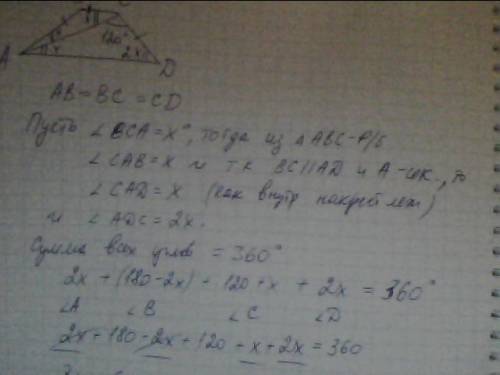 B C
x 120° 2x
A D
AB = BC = CD
Пусть ∠BCA = x°, тогда из △ABC - р/б
∠CAB = x и т.к BC||AD и A-сек., то
∠CAD = x (как внутр накрест леж.)
и ∠ADC = 2x.
Сумма всех углов = 360°
2x + (180-2x) + 120 + x + 2x = 360°
∠A ∠B ∠C ∠D
2x + 180 - 2x + 120 + x + 2x = 360